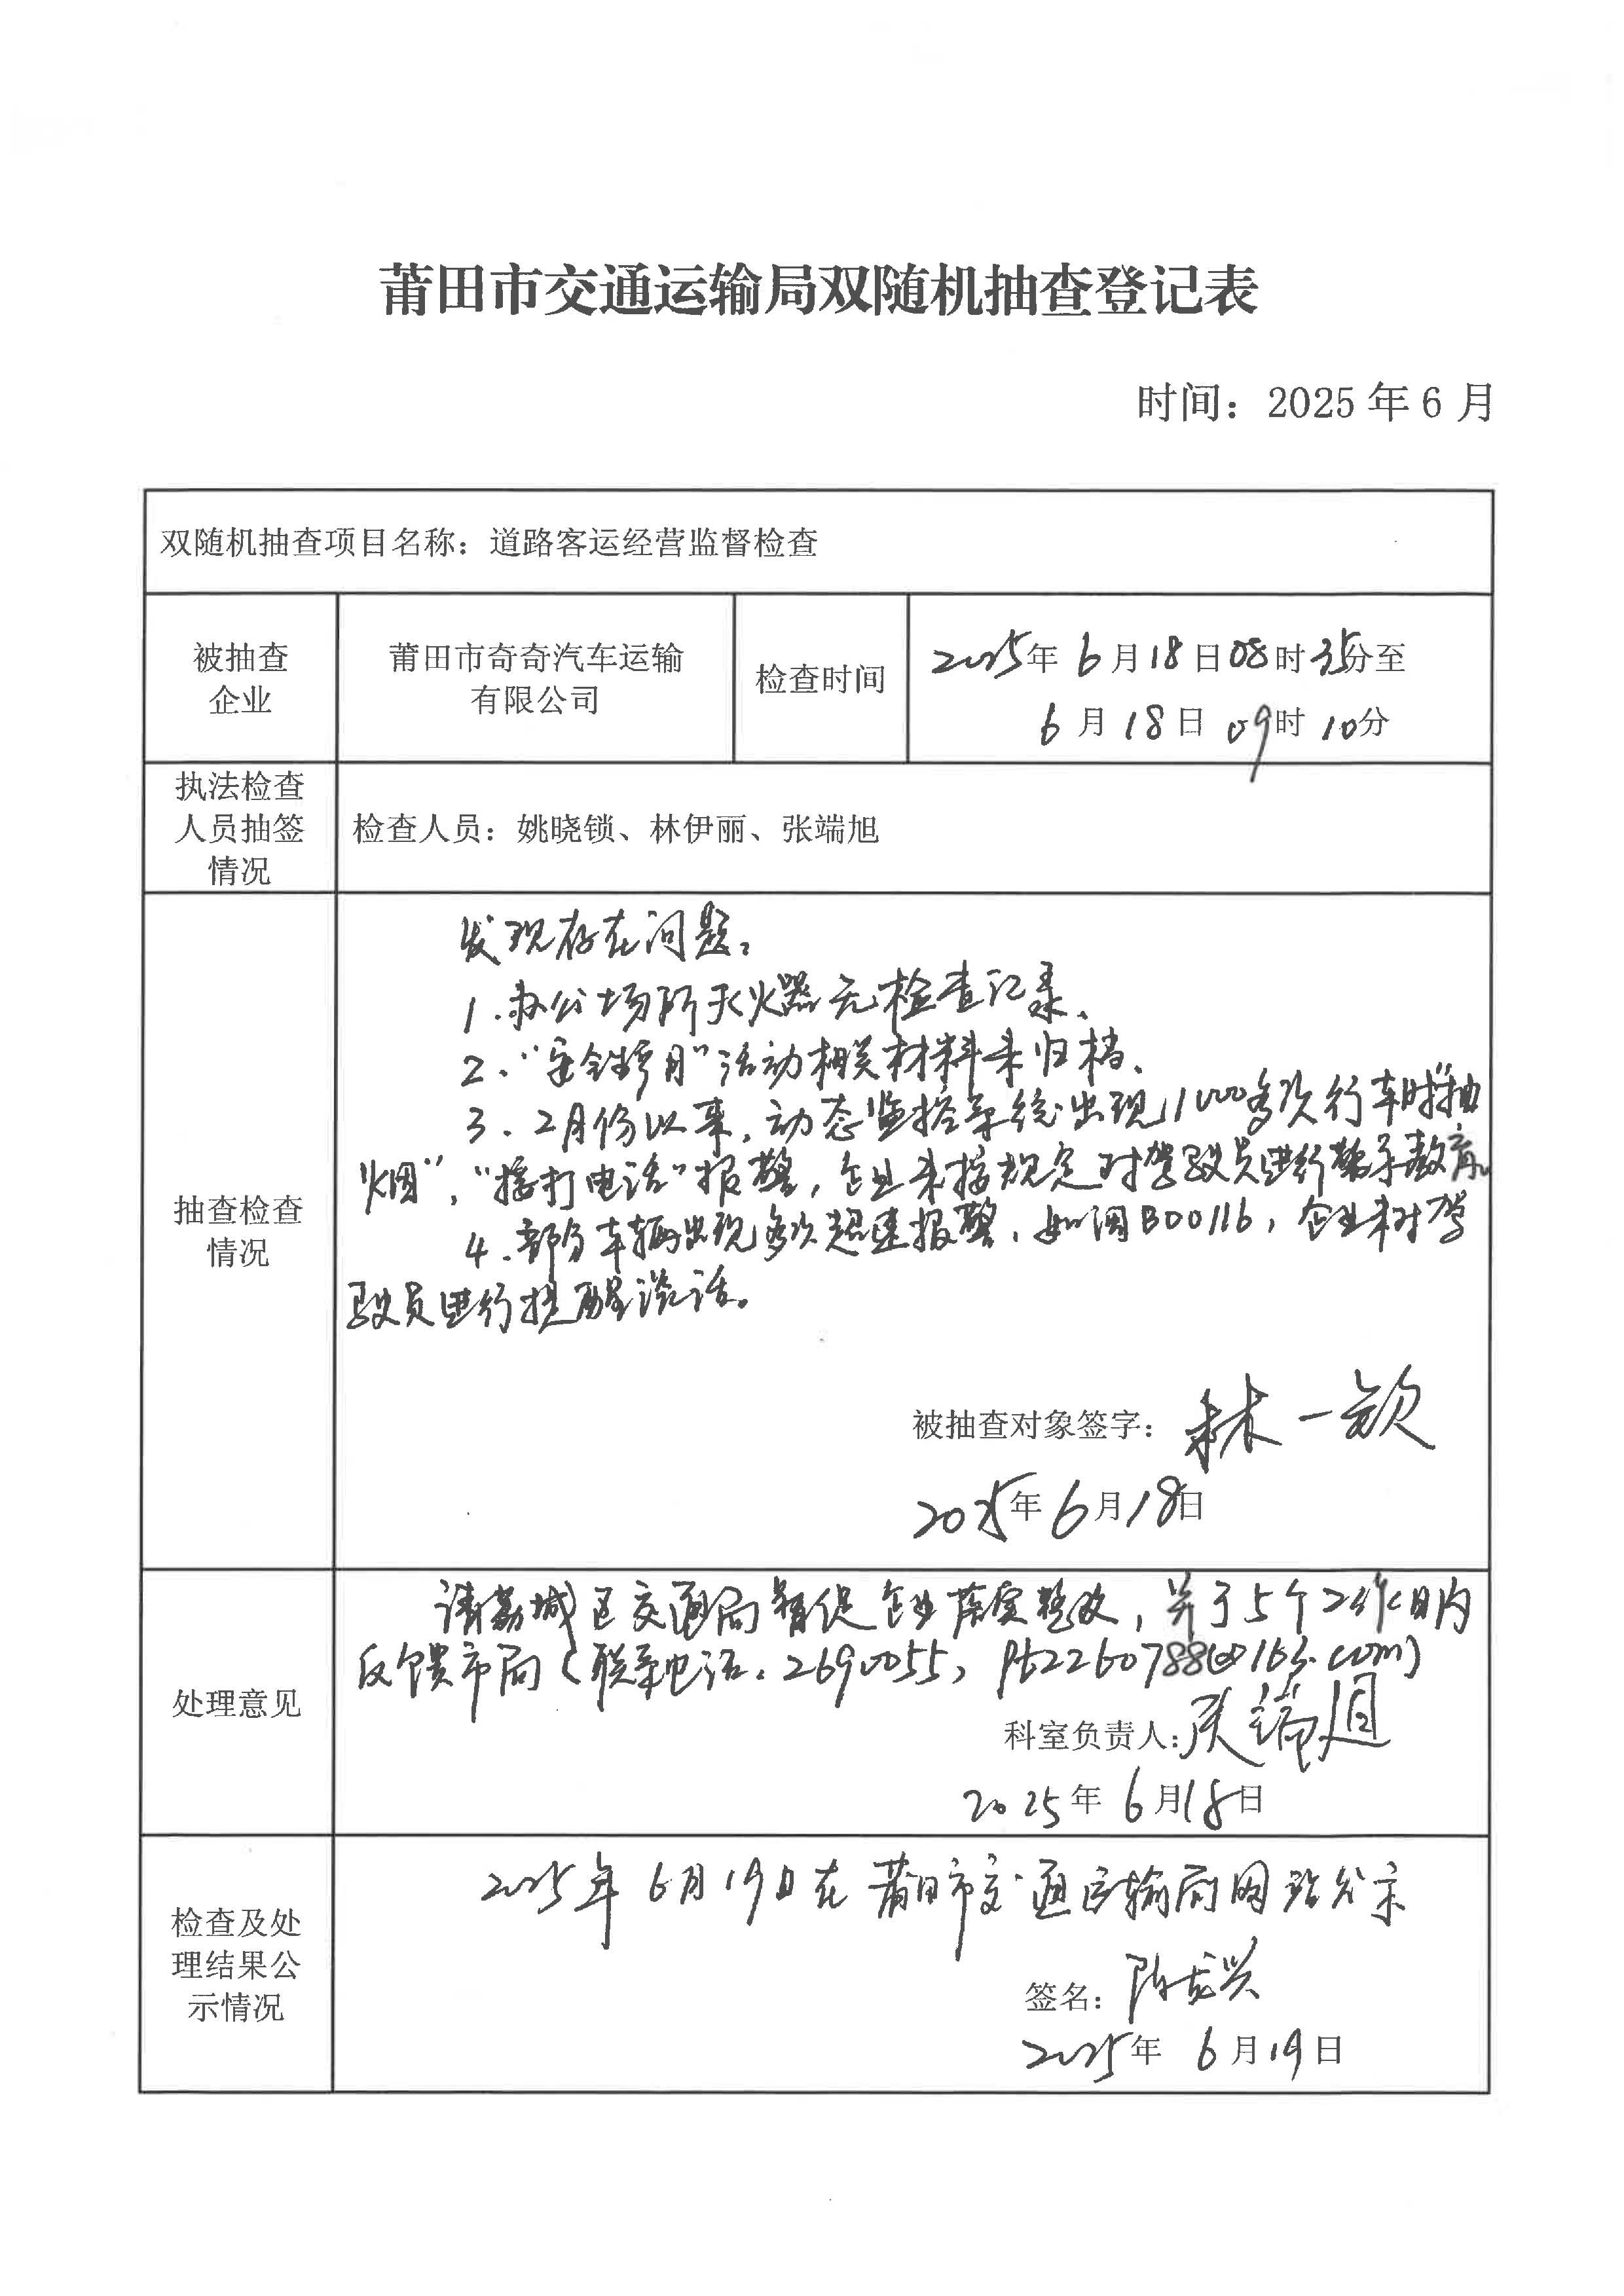 莆田市交通运输局双随机抽查登记表
时间：2025年6月
双随机抽查项目名称：道路客运经营监督检查
被抽查
企业
莆田市奇奇汽车运输
有限公司
检查时间
2025年6月18日08时35分至
6月18日09时10分
执法检查
人员抽签
情况
检查人员：姚晓锁、林伊丽、张端旭
抽查检查
情况
发现存在问题：
1.办公场所灭火器无检查记录、
2、“安全生产月”活动相关材料未归档、
3、2月份以来，动态监控系统出现1000多次行车时“抽
烟”，“接打电话”报警，企业未按规定对驾驶员进行教育。
4.部分车辆出现多次超速报警、如闽B00116，企业未对驾
驶员进行提醒谈话。
被抽查对象签字：林一欽
2025年6月18日
处理意见
请荔城区交通局督促企业落实整改，并于5个工作日内
反馈市局（联系电话：2690055，pt2260788@163.com）
科室负责人：张端旭
2025年6月18日
检查及处
理结果公
示情况
2025年6月19日在莆田市交通运输局网站公示
签名：陈
2025年6月19日